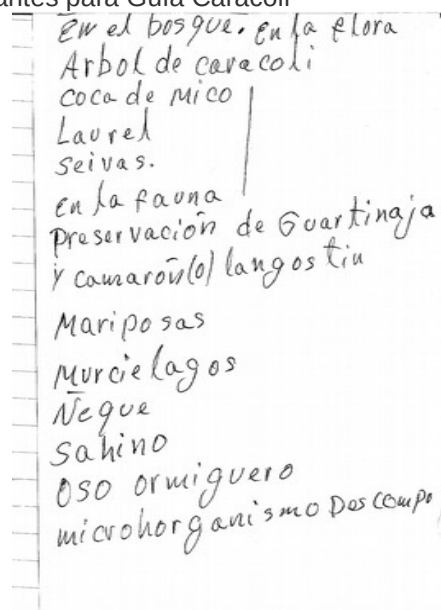 antes para Guía Caracolí
En el bosque. En la flora
Arbol de caracoli
coca de mico
Laurel
seivas.
en la fauna
preservación de Guartinaja
y camarón (o) langostin
Mariposas
Murcielagos
Ñeque
Sahino
oso ormiguero
microhorganismo Descompo